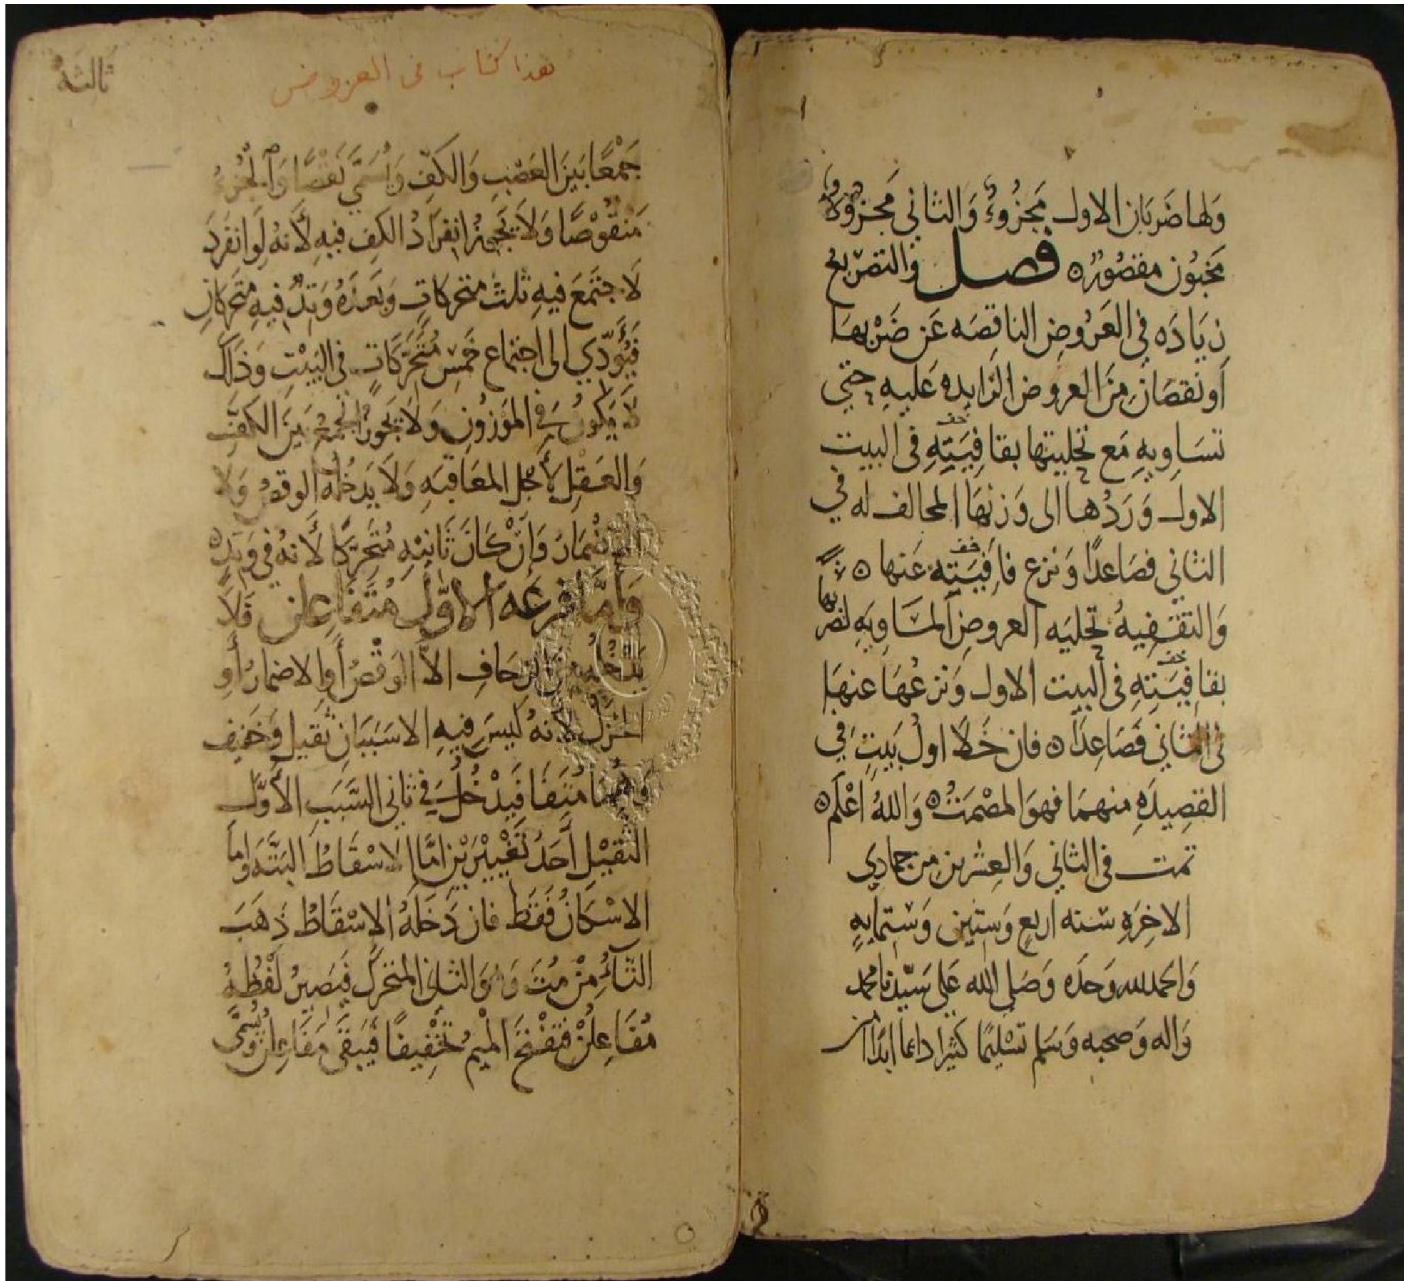 ولها ضَربَان الاول مَجزُوءٌ وَالثاني مَجزوءٌ
مخبُون مقصُورٌ ه فصل والتصريع
زيَادَه في العَرُوض الناقصَه عَن ضَرْبهَا
اَو نقصَان مِنَ العروض الزايده عَليهِ حتي
تسَاويهِ مَع تحليتها بقافِيَتِهِ فى البيت
الاول وَرَدْها الى وَزنهَا المخالف له في
الثاني فصَاعدًا وَنزع قافِيَتِه عَنها ه
وَالتقفيهُ تحليَه العروض المسَاويَه لضربها
بقافِيَتِهِ في البيت الاول وَنزعُهَا عنهَا
فى الثاني فَصَاعِدًا ه فان خَلَا اولُ بَيتٍ في
القصِيدَهِ منهمَا فهوَ المصْمَتُ ه وَاللهُ اَعْلَم ه
تمت فى الثاني وَالعِشرين مِن جمادي
الاخِرَهِ سَنه اربَعٍ وَستين وَستمايهٍ
وَالحمد لله وَحدَه وَصَلى الله عَلى سَيّدنا محمد
وَاله وَصحبه وَسَلم تسْليمًا كثيرا دايما ابدا
ثالثه
هذا كتاب فى العروض
جَمْعًا بَينَ العَصْبِ وَالكَفِّ وَيُسَمَّي نَقصًا وَالجُزءُ
مَنْقُوْصًا وَلَا يَجُوزُ انفرَادُ الكفِ فيهِ لأنهُ لَو انفَرَدَ
لَاجتَمَعَ فيهِ ثلثُ متحركاتٍ وَبَعدَهُ وَتِدٌ فيهِ متحركانِ
فَيُؤَدّي الى اجتماع خَمْسِ مُتَحَرّكَاتٍ في البَيْتِ وَذَلكَ
لَا يَكُونُ في المَوزُونِ وَلَا يَجُوزُ الجَمْعُ بَينَ الكَفِّ
وَالعَقْلِ لأجْلِ المعَاقبَهِ وَلَا يَدخُلُهُ الوقصُ وَلَا
الإضْمَارُ وَاِنْ كَانَ ثَانيْهِ مُتَحَرّكًا لأنهُ في وَتِدٍ ه
وَأَمَّا فرعُه الأوَّلُ مُتَفَاعلن فَلَا
يَدْخُلُه مِنَ الزحَافِ الاَّ الوَقْصُ أَو الاضمارُ أَو
الخزلُ لأنهُ لَيسَ فيهِ الا سَبَبَانِ ثَقِيل وَخَفِيف
وَهُمَا مُتَفَا فَيَدْخُلُ في ثاني السَّبَب الأوّلِ
الثَقِيْلِ أَحَدُ تَغْيِيْرَيْنِ اِمَّا الاسْقَاطُ البَتَّهَ وَاِما
الاسْكَانُ فَقَط فان دَخَلَهُ الاِسْقَاطُ ذهَبَ
التَّاءُ مِنْ مُتَ وَهُوَ الثاني المتحَركُ فَيَصِيرُ لَفْظُهُ
مُفَاعِلُنْ فتفْتَحُ الْمِيمُ تخْفِيفًا فَيَبقَى مَفَاعِلُن وَيُسَمَّى